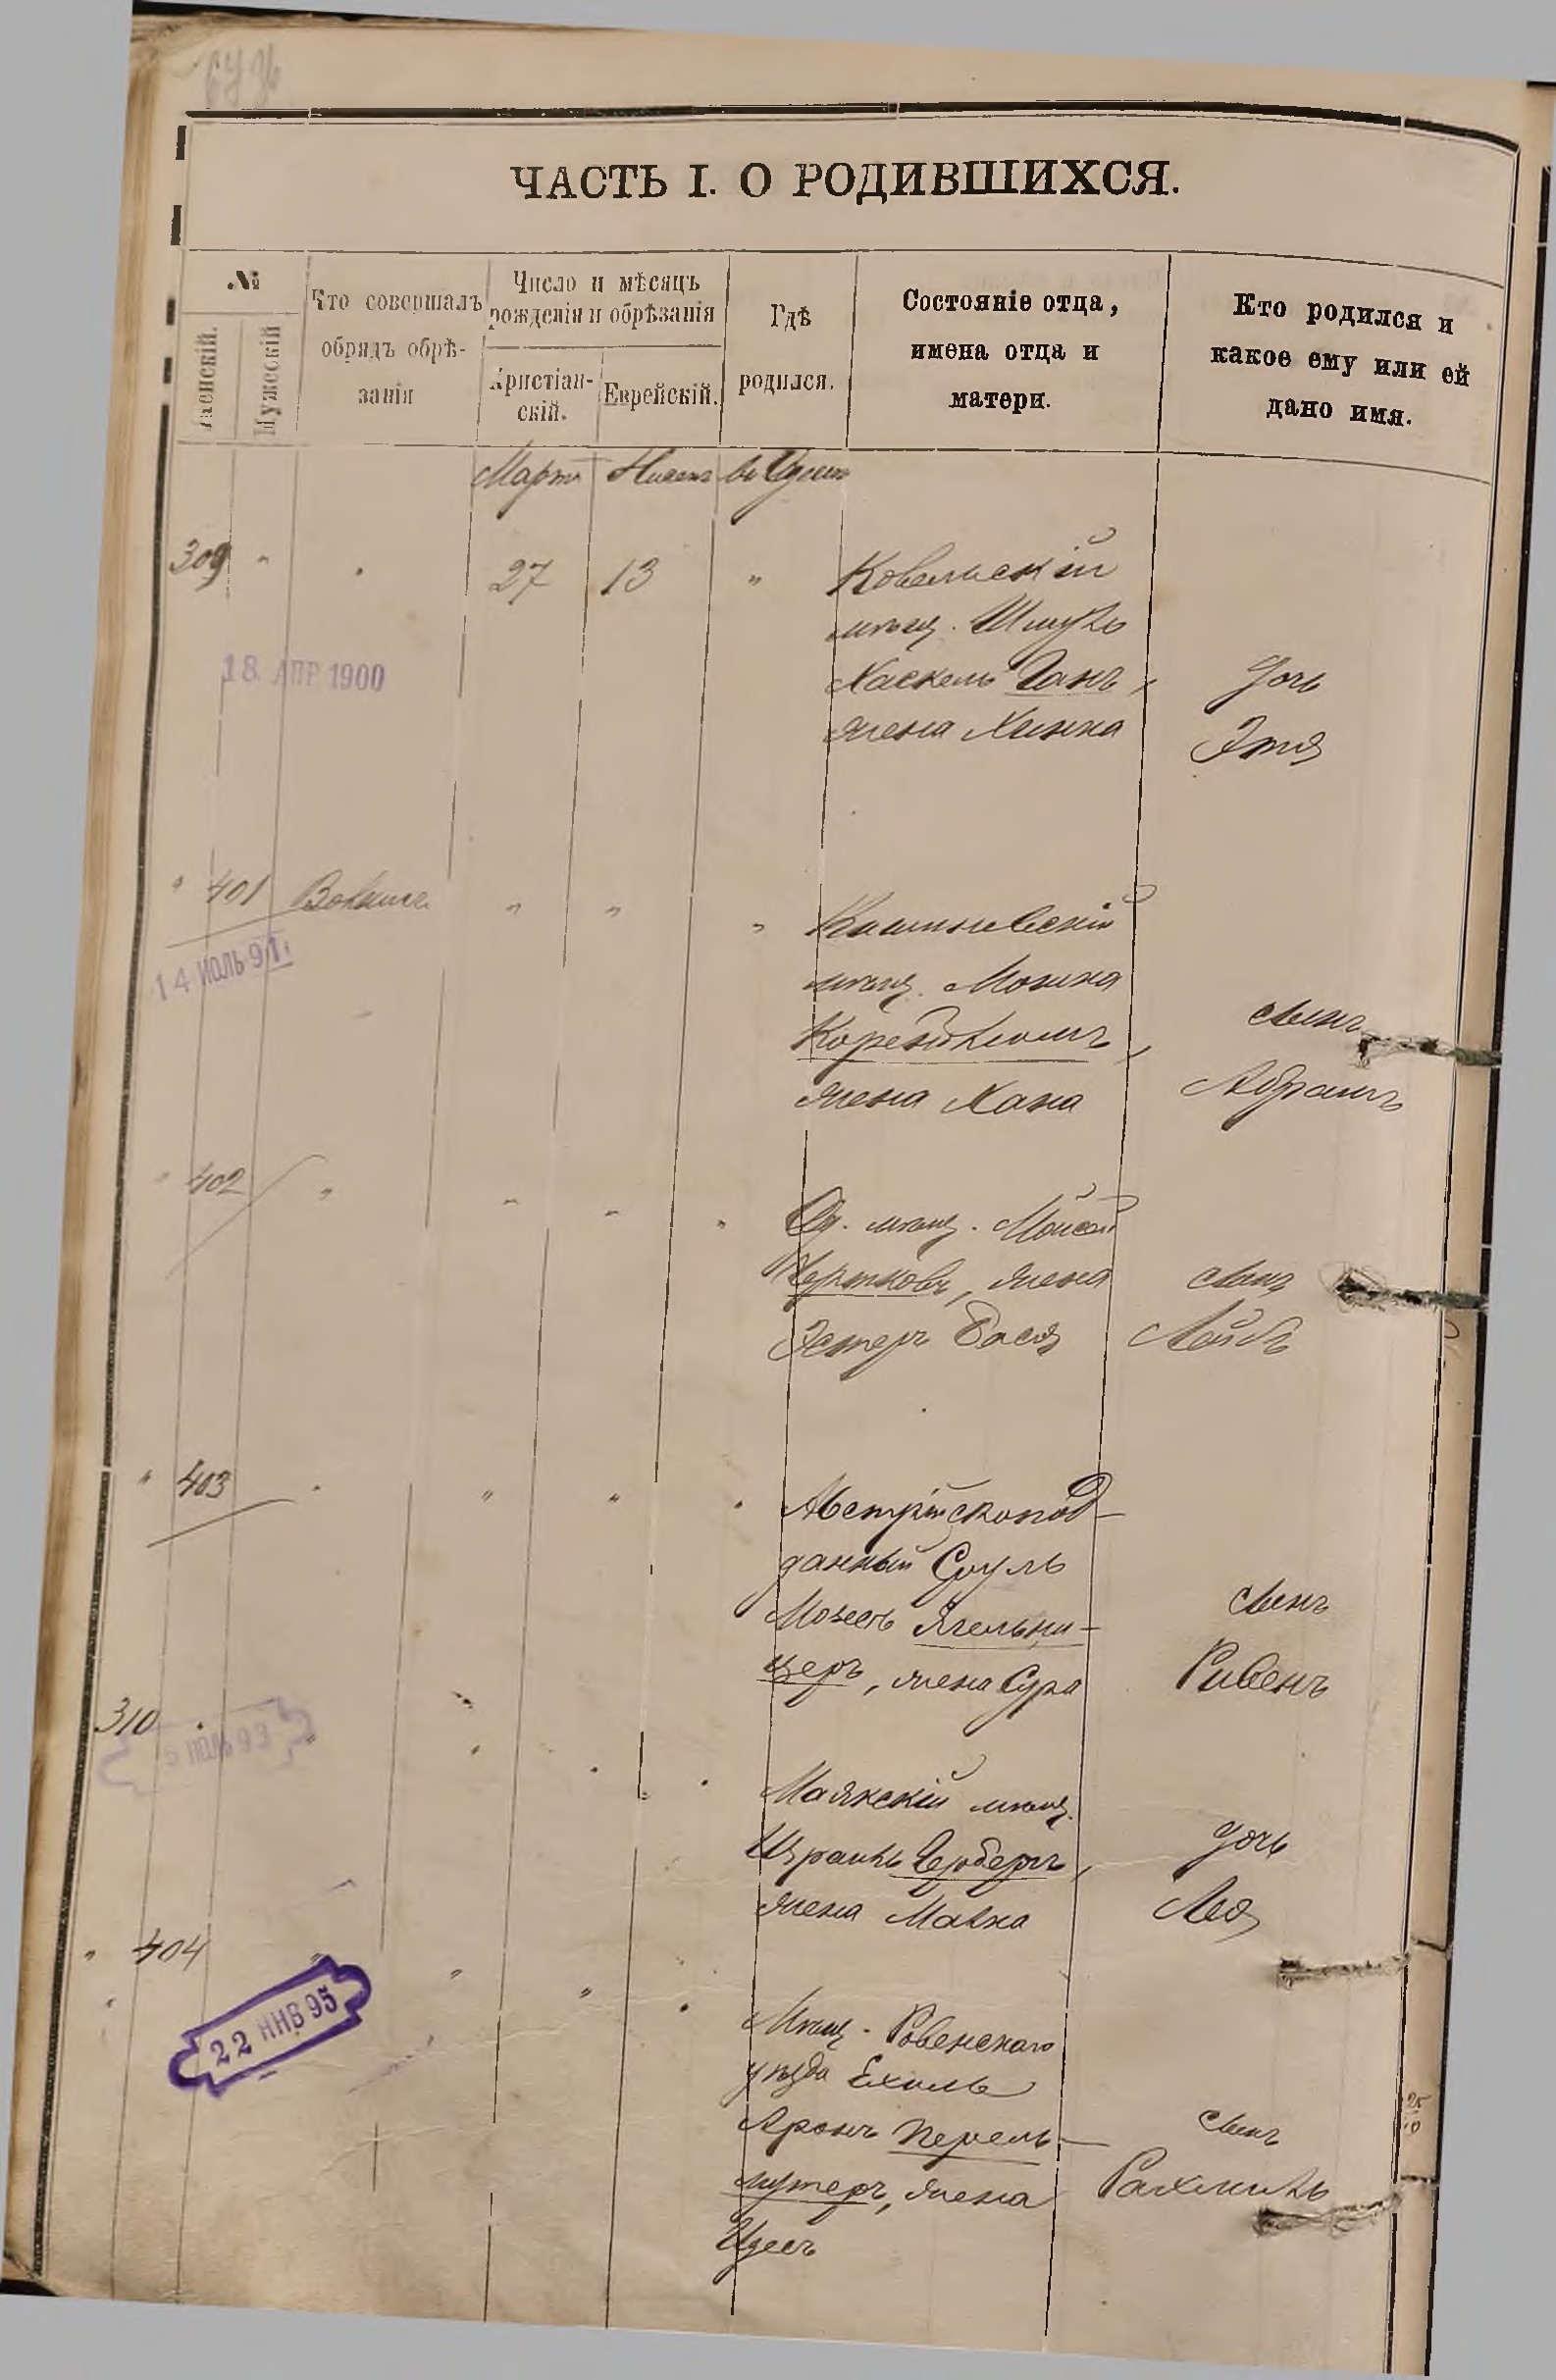 ЧАСТЬ I. О РОДИВШИХСЯ.
№
Женскій.
Мужескій
Кто совершалъ
обрядъ обрѣ-
занія
Число и мѣсяцъ
рожденія и обрѣзанія
Христіан-
скій.
Еврейскій.
Гдѣ
родился.
Состояніе отца,
имена отца и
матери.
Кто родился и
какое ему или ей
дано имя.
Мартъ Нисанъ въ Одессѣ
309 " " 27 13 " Ковельскій
мѣщ. Шмуль
Хаскель Ганъ,
жена Хинка
дочь
Этя
18. АПР 1900
" 401 " " " Кишиневскій
мѣщ. Мошка
жена Хана
сынъ
Абрамъ
14 ИЮЛЬ 91
" 402 " " " " Од. мѣщ. Мойсей
Чертковъ, жена
Эстеръ Бася
сынъ
Лейбъ
" 403 " " " " Австрійскопод-
данный Сруль
Мозесъ Ягельни-
церъ, жена Сура
сынъ
Ривенъ
310 " " " " " Маякскій мѣщ.
Израиль Герберъ,
жена Малка
дочь
Лея
5 ИЮЛЬ 93
" 404 " " " " Мѣщ. Ровенскаго
уѣзда Ехиль
Аронъ Перель-
мутеръ, жена
Идесъ
сынъ
Рахмиль
22 ЯНВ 95